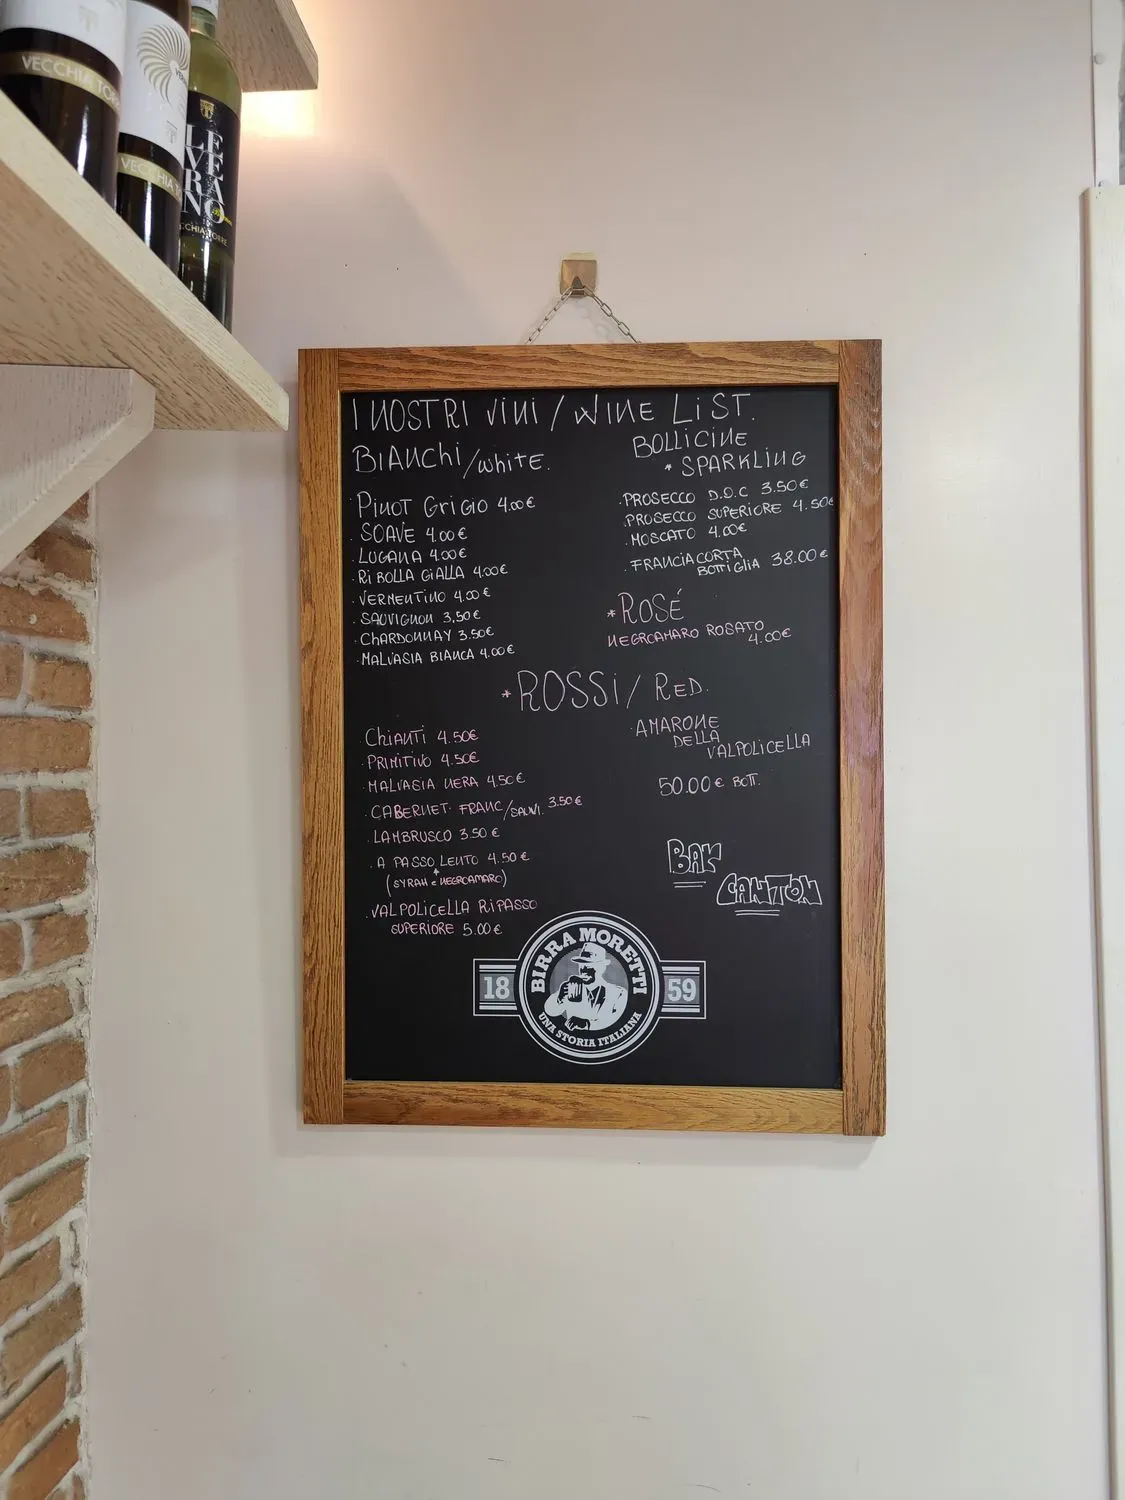 VECCHIA TORRE
VECCHIA T
LE
VE
RA
NO
CCHIA TORRE
I NOSTRI VINI / WINE LIST.
BIANCHI / WHITE.
· PINOT GRIGIO 4.00€
· SOAVE 4.00€
· LUGANA 4.00€
· RIBOLLA GIALLA 4.00€
· VERMENTINO 4.00€
· SAUVIGNON 3.50€
· CHARDONNAY 3.50€
· MALVASIA BIANCA 4.00€
BOLLICINE
* SPARKLING
· PROSECCO D.O.C 3.50€
· PROSECCO SUPERIORE 4.50€
· MOSCATO 4.00€
· FRANCIACORTA
BOTTIGLIA 38.00€
* ROSÉ
NEGROAMARO ROSATO
4.00€
* ROSSI / RED.
CHIANTI 4.50€
· PRIMITIVO 4.50€
· MALVASIA NERA 4.50€
· CABERNET FRANC/SAUVI. 3.50€
· LAMBRUSCO 3.50€
· A PASSO LENTO 4.50€
(SYRAH e NEGROAMARO)
· VALPOLICELLA RIPASSO
SUPERIORE 5.00€
· AMARONE
DELLA
VALPOLICELLA
50.00€ BOTT.
BAR
CANTON
BIRRA MORETTI
18 59
UNA STORIA ITALIANA